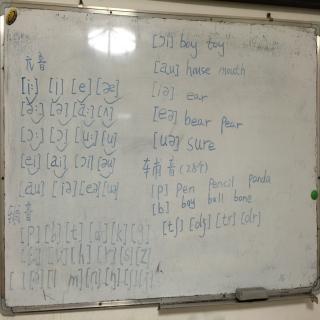 元音
[i:] [i] [e] [æ]
[ə:] [ə] [ɑ:] [ʌ]
[ɔ:] [ɔ] [u:] [u]
[ei] [ai] [ɔi] [əu]
[au] [iə] [eə] [uə]
辅音
[p] [b] [t] [d] [k] [g]
[v] [h] [r] [s] [z]
[ɔi] boy toy
[au] house mouth
[iə] ear
[eə] bear pear
[uə] sure
辅音 (28个)
[p] pen pencil panda
[b] boy ball bone
[tʃ] [dʒ] [tr] [dr]